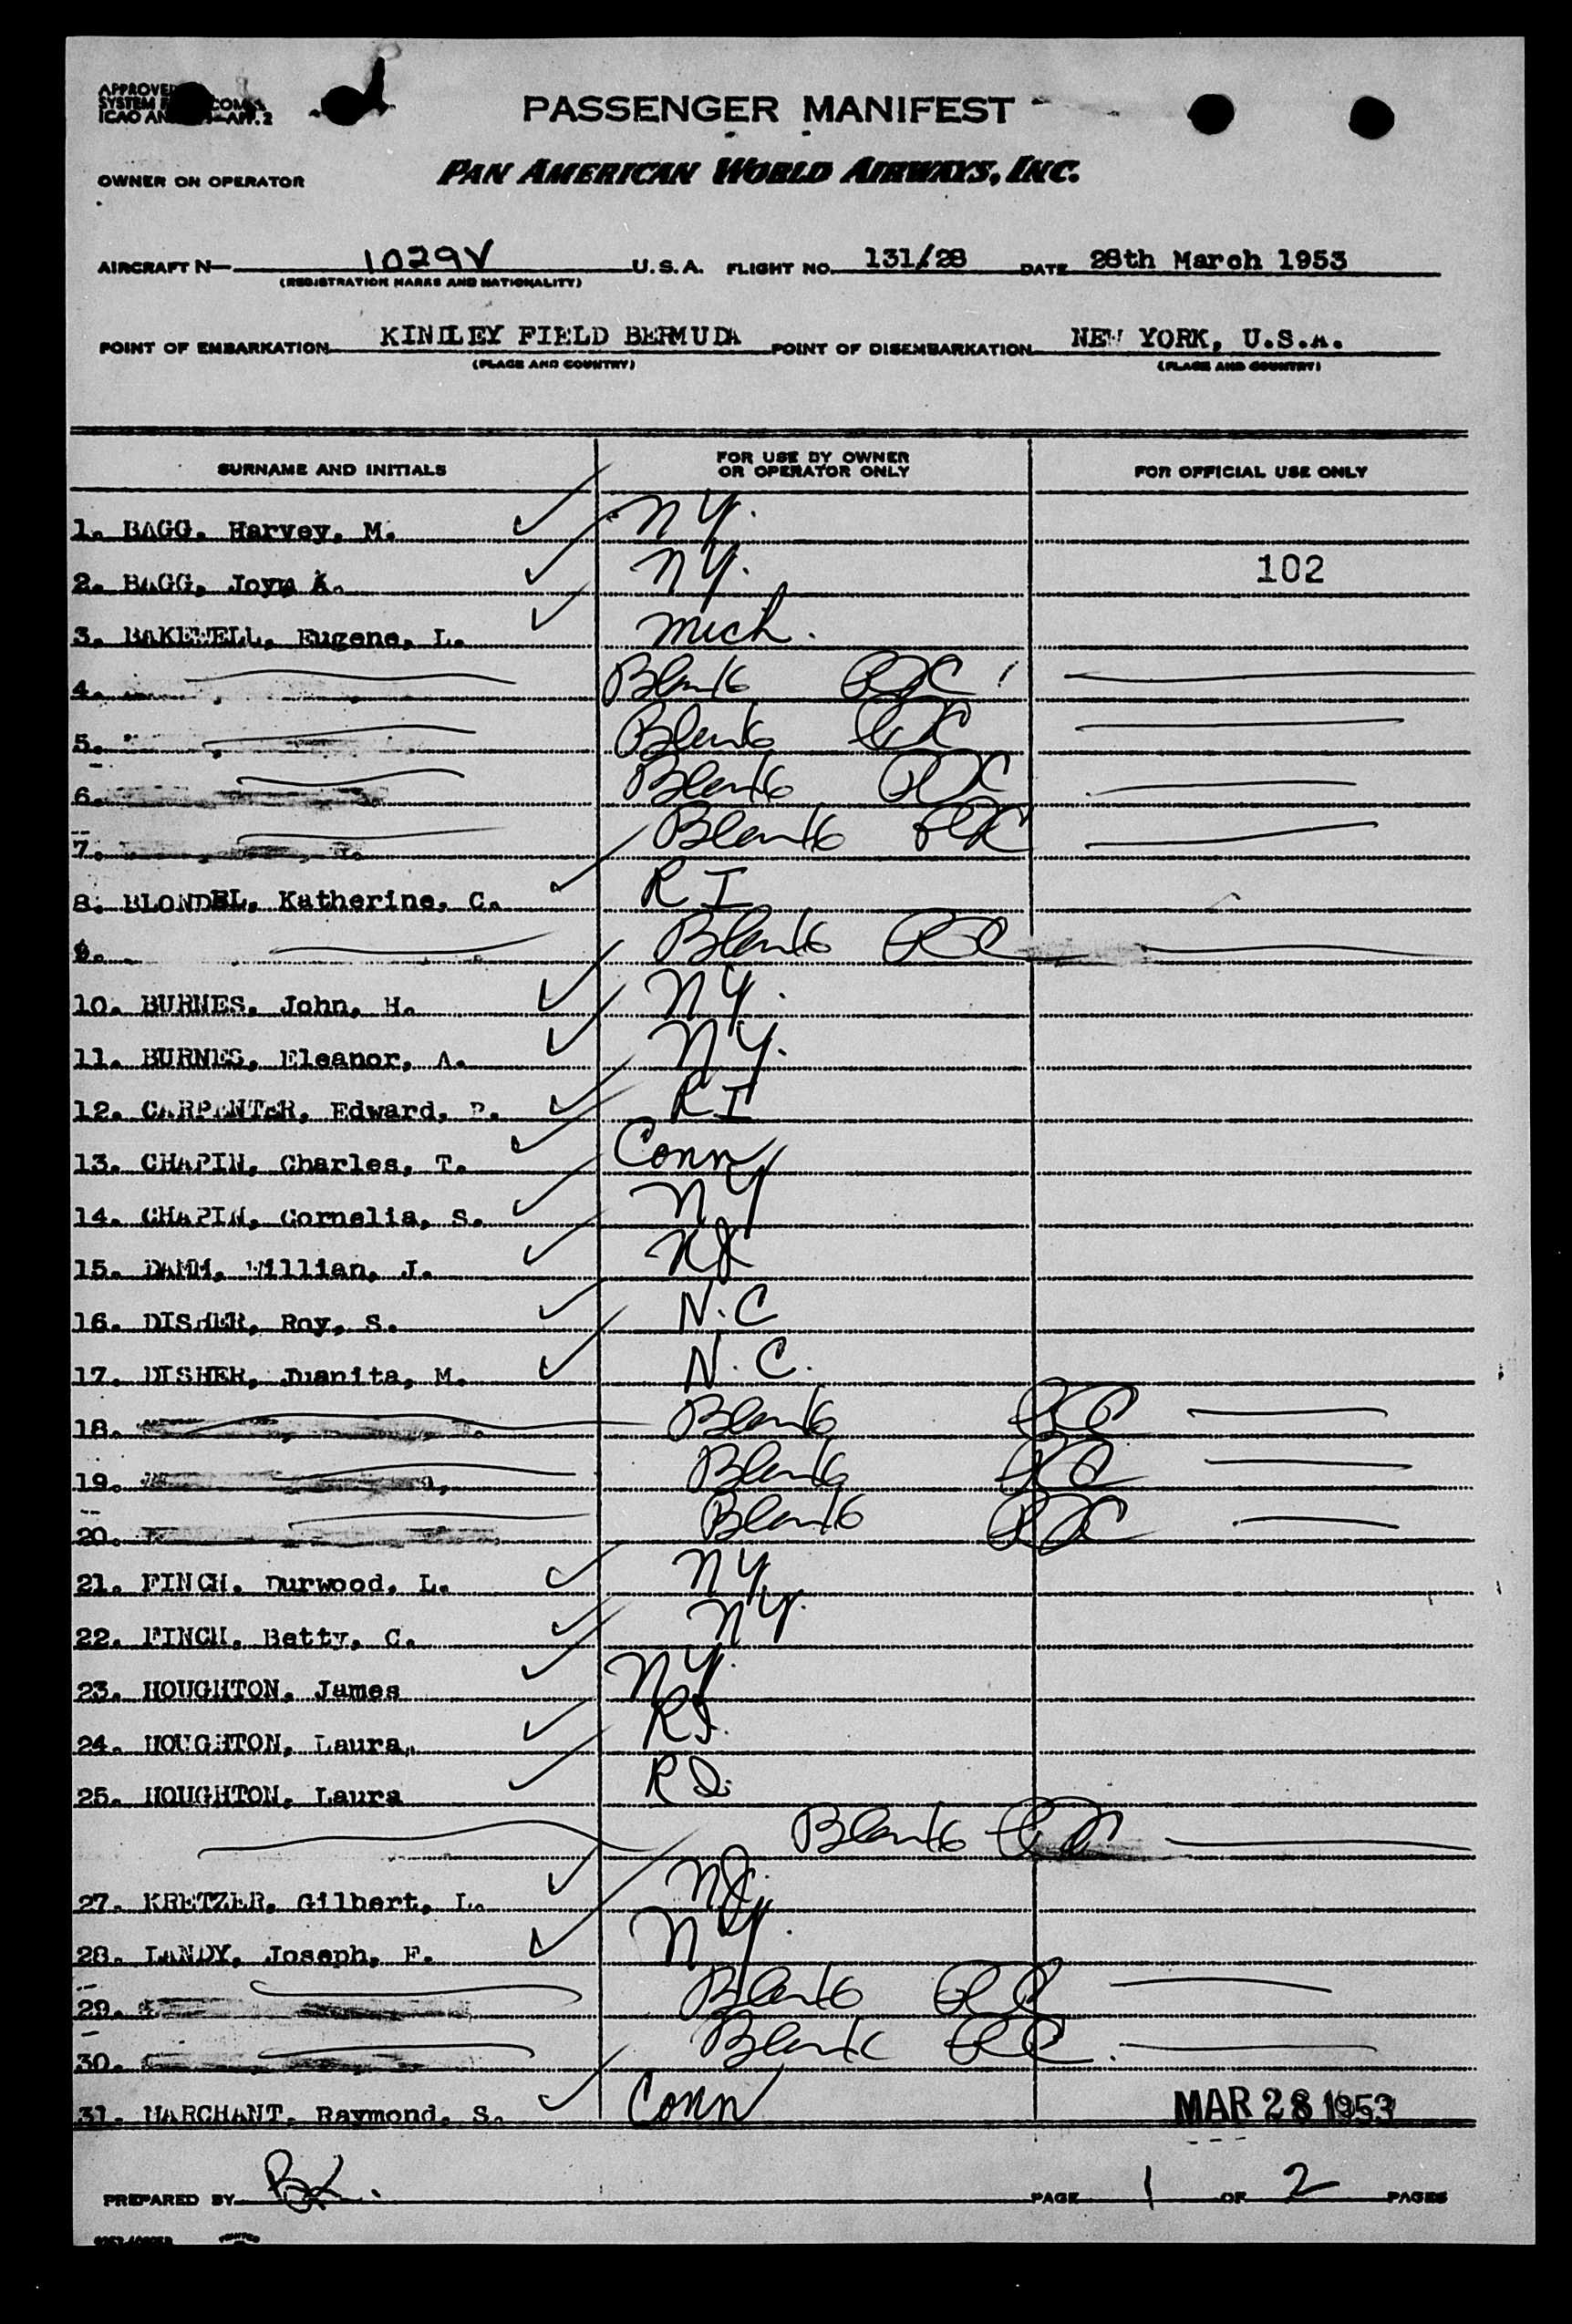 PASSENGER MANIFEST
OWNER ON OPERATOR
PAN AMERICAN WORLD AIRWAYS, INC.
AIRCRAFT N— 1029V U.S.A. FLIGHT NO. 131/28 DATE 28th March 1953
(REGISTRATION MARKS AND NATIONALITY)
POINT OF EMBARKATION KINDLEY FIELD BERMUDA POINT OF DISEMBARKATION NEW YORK, U.S.A.
(PLACE AND COUNTRY) (PLACE AND COUNTRY)
SURNAME AND INITIALS FOR USE BY OWNER OR OPERATOR ONLY FOR OFFICIAL USE ONLY
1. BAGG, Harvey, M. NY.
2. BAGG, A. NY. 102
3. BAKEWELL, Eugene, L. Mich.
4. Blank
5. Blank
6. Blank
7. Blank
8. BLONDEL, Katherine, C. RI
9. Blank
10. BURNES, John, H. NY.
11. BURNES, Eleanor, A. NY.
12. CARPENTER, Edward, P. RI
13. CHAPIN, Charles, T. Conn
14. CHAPIN, Cornelia, S. NY
15. DAMM, Willian, J. NJ
16. DISHER, Roy, S. N.C
17. DISHER, Juanita, M. N.C.
18. Blank
19. Blank
20. Blank
21. FINCH, Durwood, L. NY
22. FINCH, Betty, C. NY.
23. HOUGHTON, James NY.
24. HOUGHTON, Laura, RI.
25. HOUGHTON, Laura RI.
Blank
27. KRETZER, Gilbert, L. NJ.
28. LANDY, Joseph, F. NY.
29. Blank
30. Blank
31. MARCHANT, Raymond, S. Conn MAR 28 1953
PREPARED BY PAGE 1 OF 2 PAGES